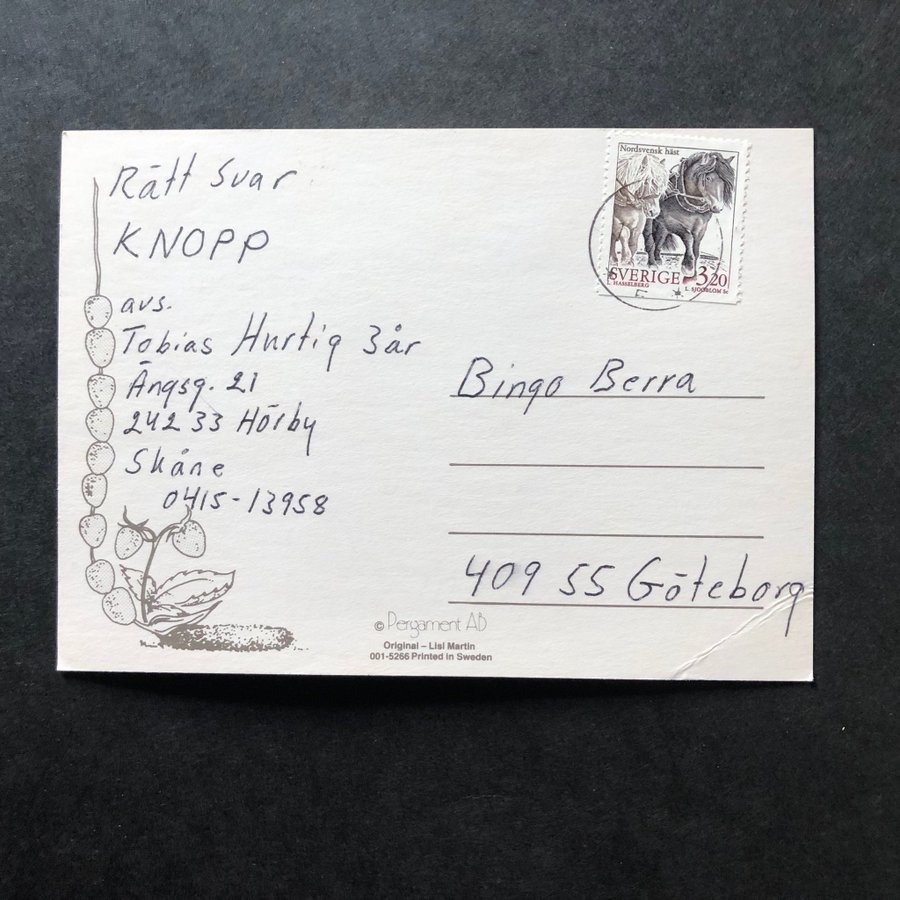 Rätt Svar
KNOPP
avs.
Tobias Hurtig 3år
Ängsg. 21
242 33 Hörby
Skåne
0415-13958
Nordsvensk häst
SVERIGE 3,20
I. HASSELBERG L. SJÖÖBLOM SC
Bingo Berra
409 55 Göteborg
© Pergament AB
Original – Lisi Martin
001-5266 Printed in Sweden